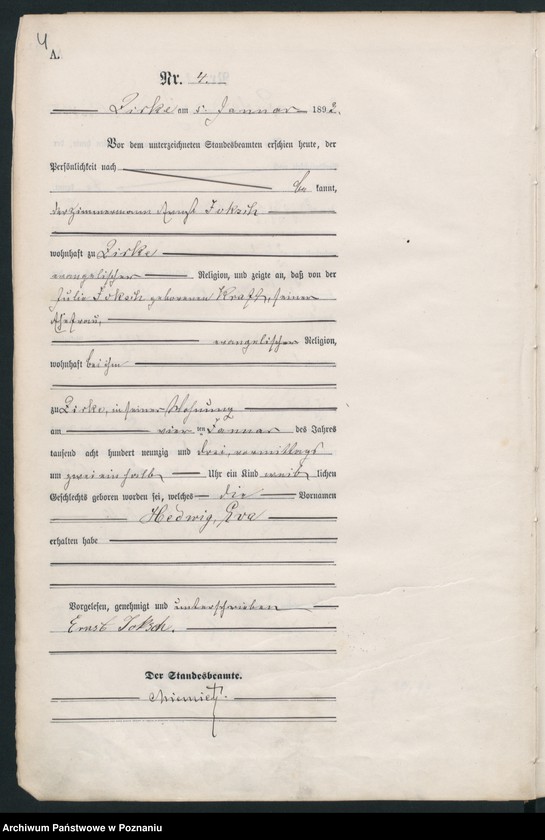 4
A.
Nr. 4.
Zirke am 5. Januar 189
Vor dem unterzeichneten Standesbeamten erschien heute, der
Persönlichkeit nach
be kannt,
der Zimmermann Ernst Joksch
wohnhaft zu Zirke
evangelischer Religion, und zeigte an, daß von der
Julie Joksch geborenen Kraft, seiner
Ehefrau,
evangelischer Religion,
wohnhaft bei ihm
zu Zirke, in seiner Wohnung
am vier ten Januar des Jahres
tausend acht hundert neunzig und drei, vormittags
um zwei ein halb Uhr ein Kind weib lichen
Geschlechts geboren worden sei, welches die Vornamen
Hedwig, Eva
erhalten habe
Vorgelesen, genehmigt und unterschrieben
Ernst Joksch.
Der Standesbeamte.
Archiwum Państwowe w Poznaniu